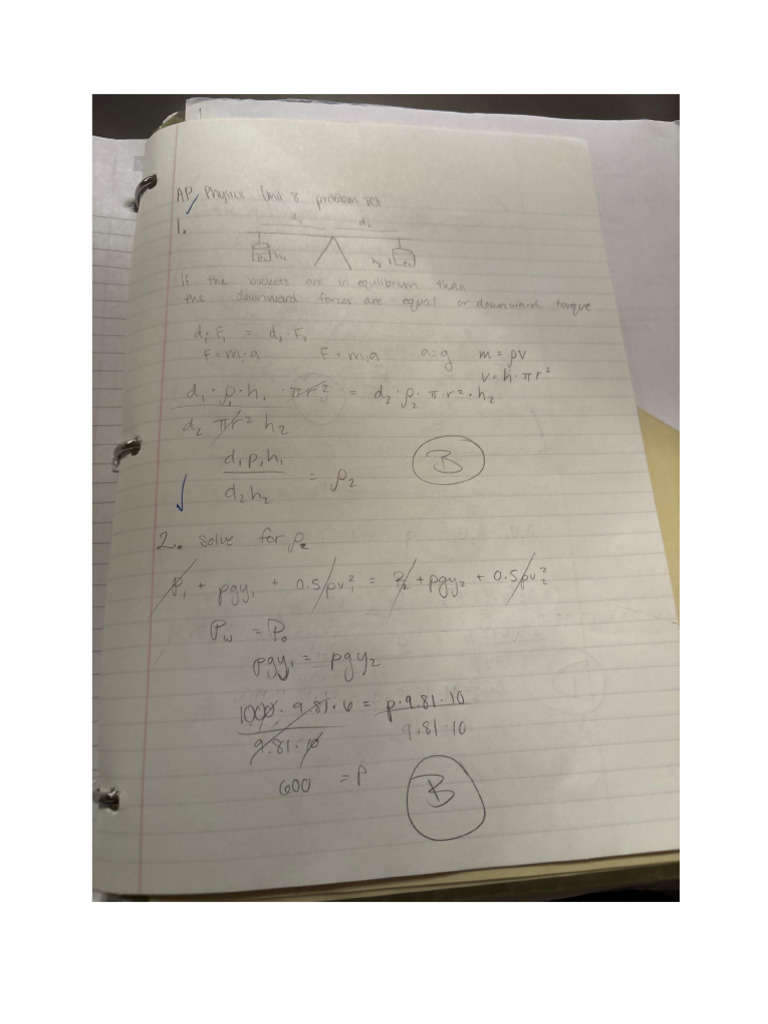 AP Physics Unit 8 problem set
1.
d₂ d₁
h₁ h₂
If the buckets are in equilibrium than
the downward forces are equal or downward torque
d₁·F₁ = d₂·F₂
F=m·a F=m·a a=g m=ρv
v=h·πr²
d₁·ρ₂·h₁·πr² = d₂·ρ₂·π·r²·h₂
d₂ πr² h₂
d₁ρ₁h₁
= ρ₂ B
d₂h₂
2. solve for ρ₂
P₁ + ρgy₁ + 0.5ρv₁² = P₂ + ρgy₂ + 0.5ρv₂²
P_w = P_o
ρgy₁ = ρgy₂
1000·9.81·6 = ρ·9.81·10
9.81·10 9.81·10
600 = ρ
B